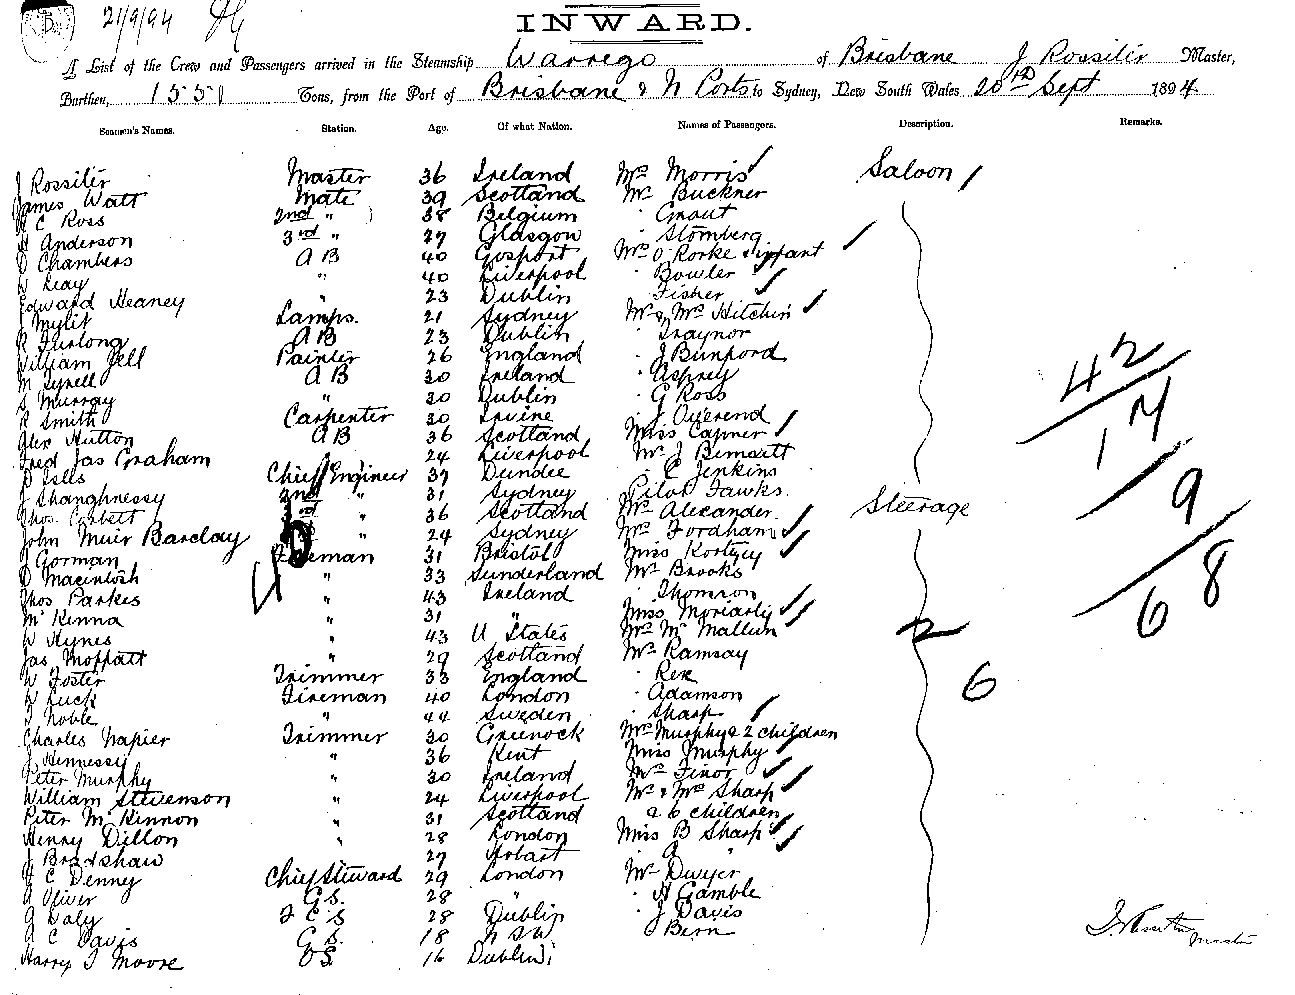 21/9/94
INWARD.
A List of the Crew and Passengers arrived in the Steamship Warrego of Brisbane J Rossiter Master,
Burthen, 1551 Tons, from the Port of Brisbane & N Ports to Sydney, New South Wales 20th Sept 1894
Seamen's Names. Station. Age. Of what Nation. Names of Passengers. Description. Remarks.
J Rossiter Master 36 Ireland Mrs Morris Saloon
James Watt Mate 39 Scotland Mr Buckner
C Ross 2nd " 38 Belgium " Grout
Anderson 3rd " 27 Glasgow " Stomberg
D Chambers A B 40 Gosport Mrs O'Rorke & infant
W Leay " 40 Liverpool " Bowler
Edward Heaney " 23 Dublin " Fisher
Mylit Lamps. 21 Sydney Mr & Mrs Hitchin
R Furlong A B 23 Dublin " Traynor
William Jell Painter 26 England " J Bunford
M Tyrell A B 30 Ireland " Asprey
S Murray " 30 Dublin " G Ross
R Smith Carpenter 30 Irvine " J Overend
Alex Hutton A B 36 Scotland Miss Capner
Fred Jas Graham " 24 Liverpool Mr J Bennett
D Isles Chief Engineer 37 Dundee " C Jenkins
J Shanghnessy 2nd " 31 Sydney Pilot Fawks
Thos Corbett 3rd " 36 Scotland Mrs Alexander Steerage
John Muir Barclay " 24 Sydney Mrs Fordham
J Gorman Fireman 31 Bristol Miss
D Macintosh " 33 Sunderland Mr Brooks
Thos Parkes " 43 Ireland " Thomson
McKinna " 31 " Miss Moriarty
W Hynes " 43 U States Mrs McMallum
Jas Moffatt " 29 Scotland Mr Ramsay
W Foster Trimmer 33 England " Rex
W Luck Fireman 40 London " Adamson
T Noble " 44 Sweden " Sharp
Charles Napier Trimmer 30 Greenock Mrs Murphy & 2 children
J Hennessy " 36 Kent Miss Murphy
Peter Murphy " 30 Ireland Mrs Finor
William Stevenson " 24 Liverpool Mr & Mrs Sharp
Peter McKinnon " 31 Scotland & 6 children
Henry Dillon " 28 London Miss B Sharp
J Bradshaw " 27 Hobart " A "
C Denny Chief Steward 29 London Mr Dwyer
A Oliver G.S. 28 " " H Gamble
A Daly F C S 28 Dublin " J Davis
A C Davis G.S. 18 N S W " J Bern
Harry J Moore O.S. 16 Dublin
40
2
6
42
17
1
9
68
J Rossiter
Master